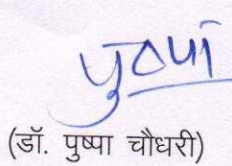 पुष्पा
(डॉ. पुष्पा चौधरी)